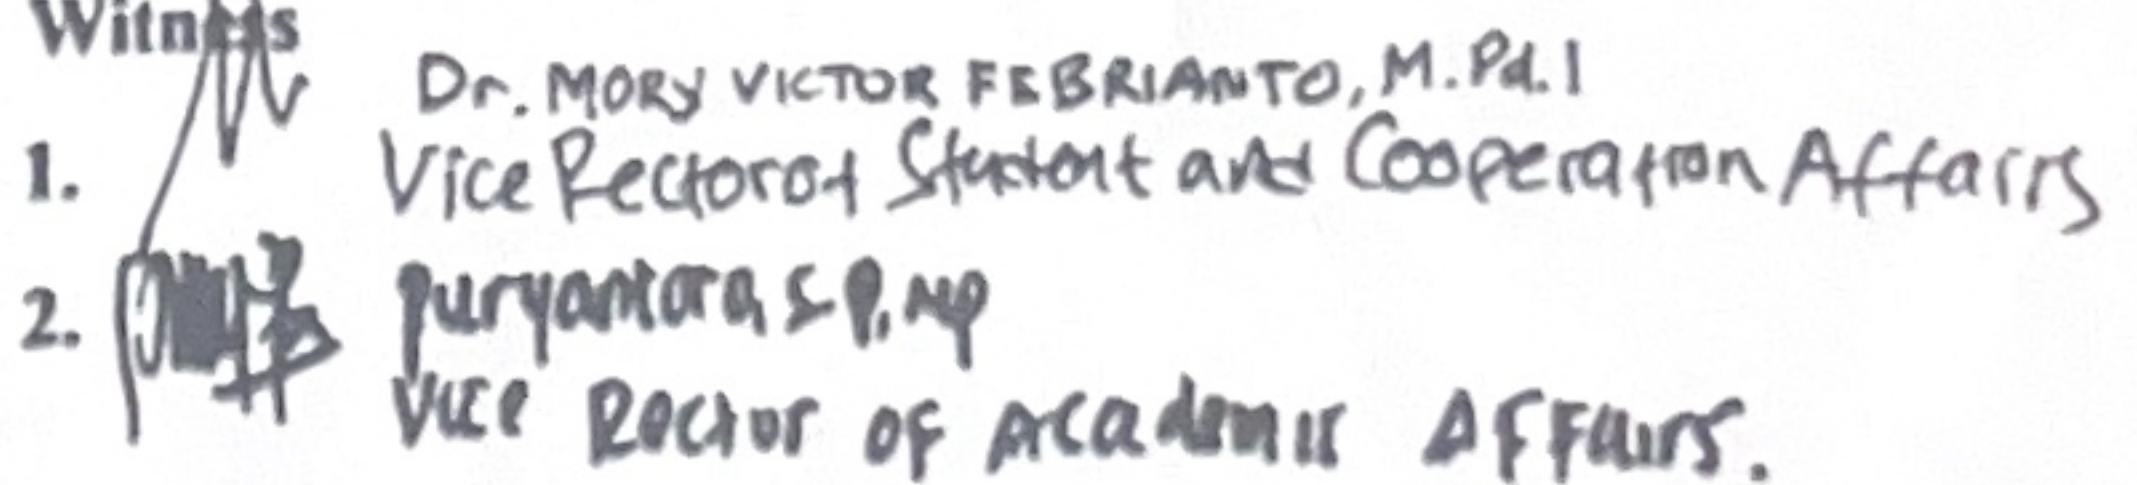 Witness
Dr. MORY VICTOR FEBRIANTO, M.Pd.I
1. Vice Rector of Student and Cooperation Affairs
2. Puryantara S P. MP
Vice Rector of Academic Affairs.